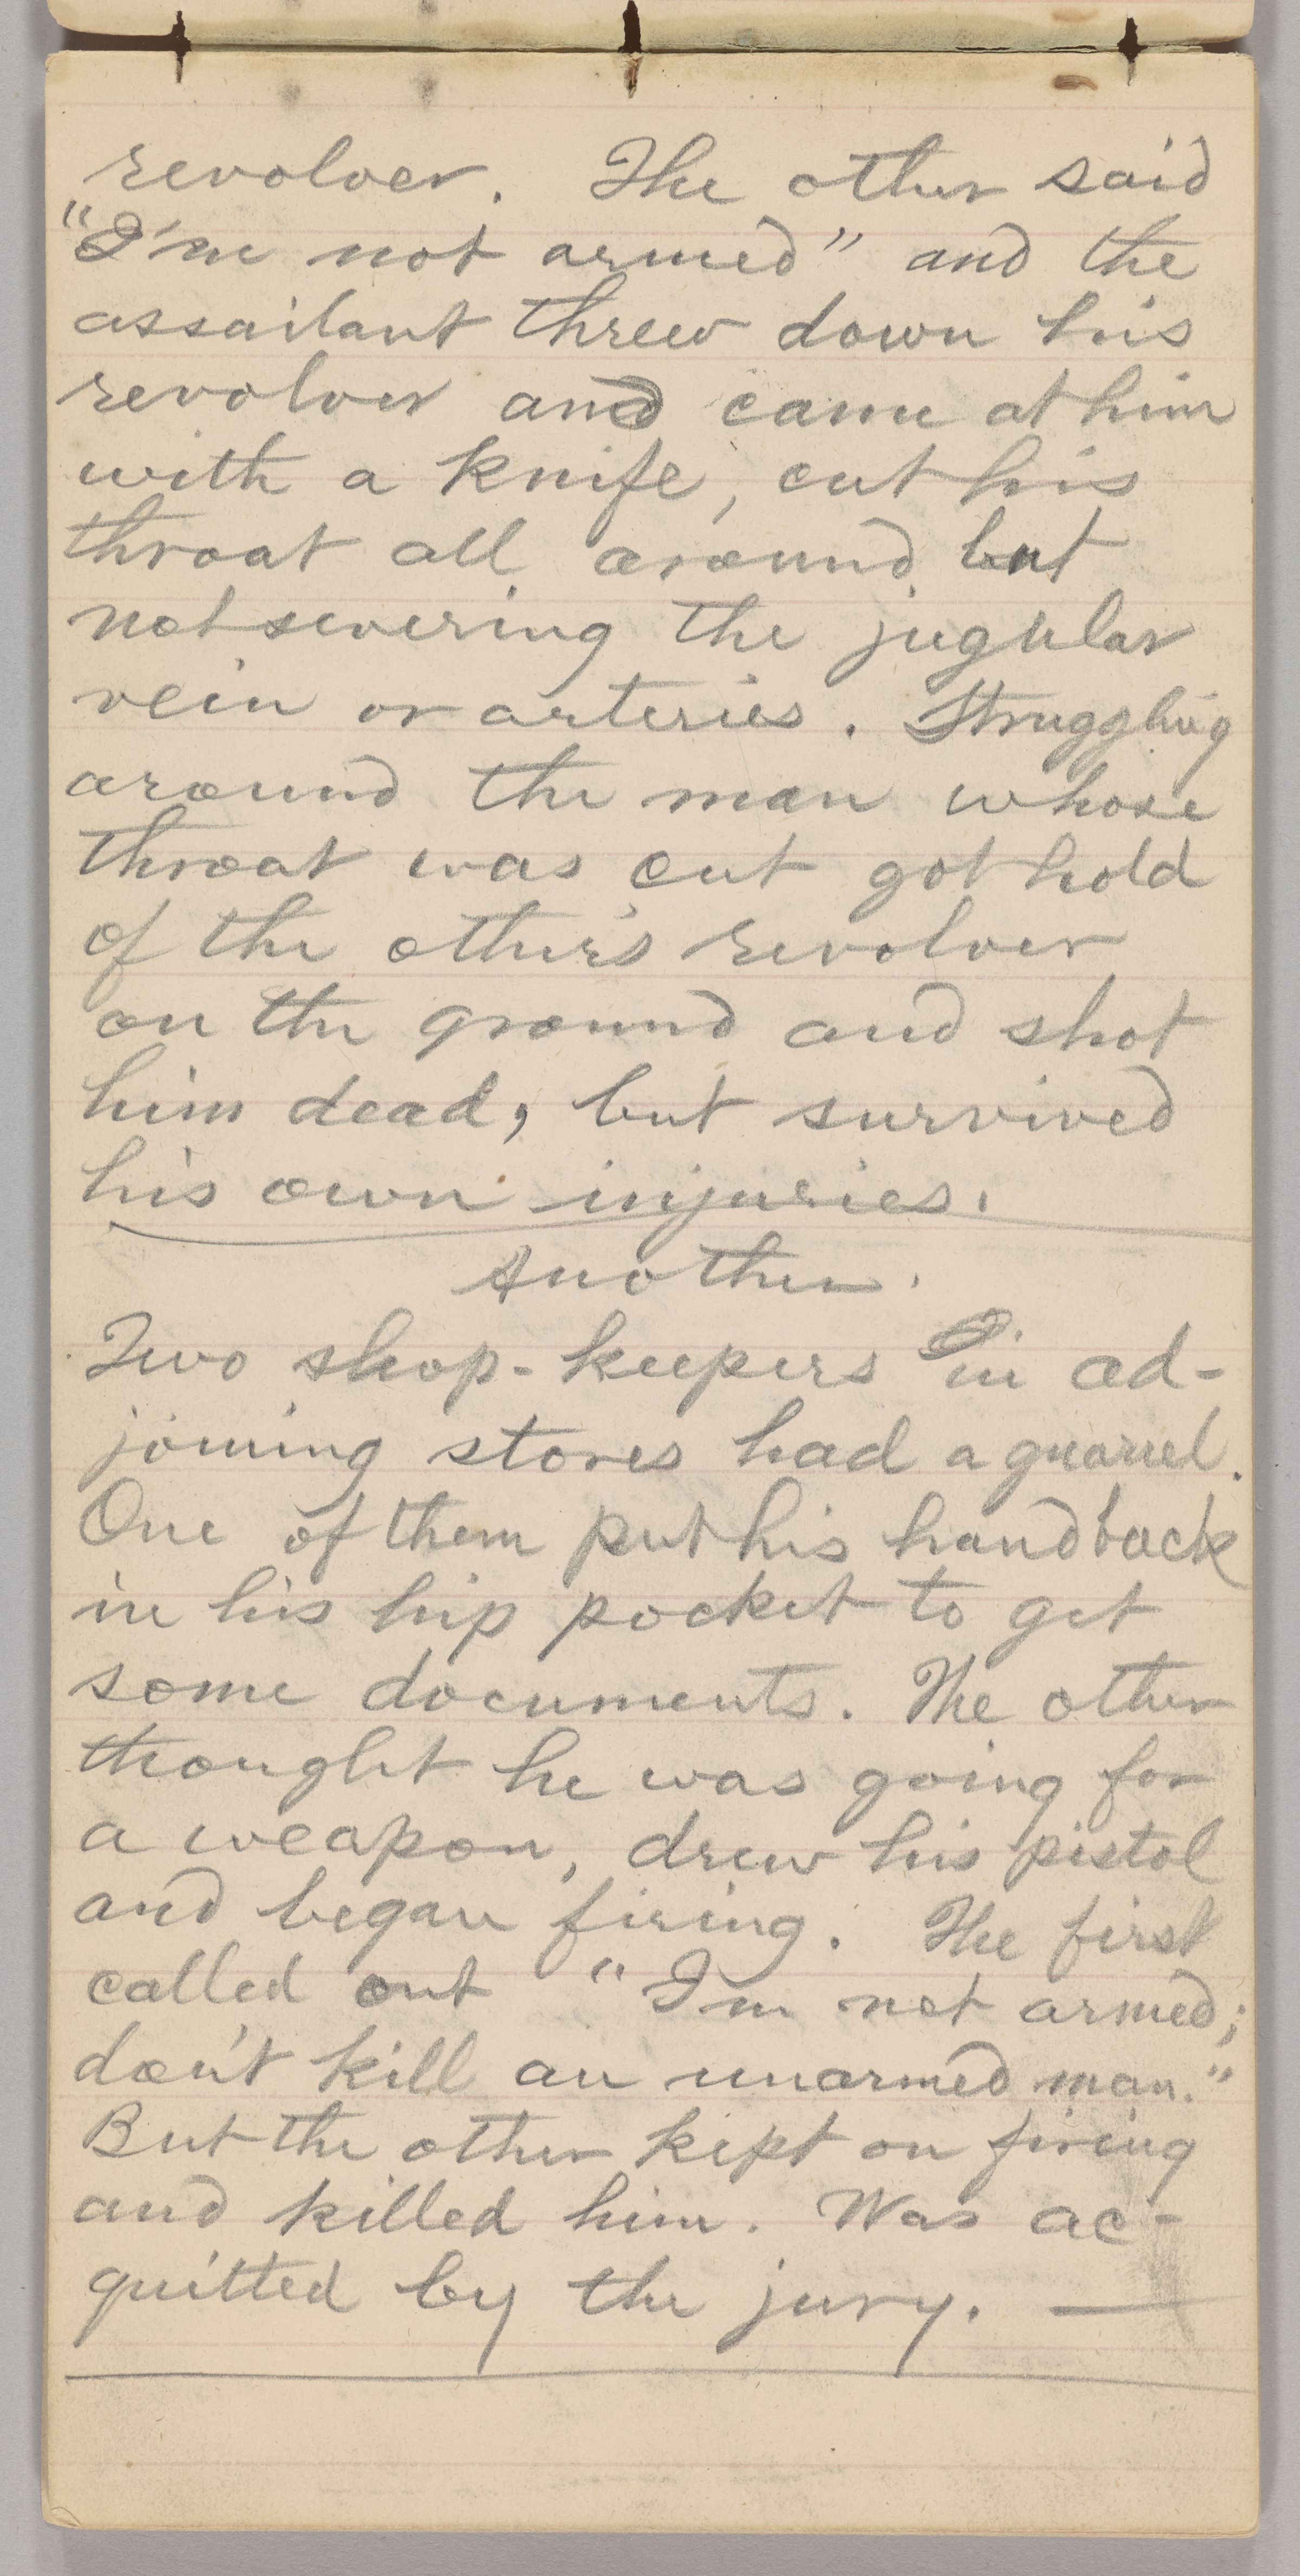 revolver. The other said
"I'm not armed" and the
assailant threw down his
revolver and came at him
with a knife, cut his
throat all around but
not severing the jugular
vein or arteries. Struggling
around the man whose
throat was cut got hold
of the other's revolver
on the ground and shot
him dead, but survived
his own injuries.
Another.
Two shop-keepers in ad-
joining stores had a quarrel.
One of them put his hand back
in his hip pocket to get
some documents. The other
thought he was going for
a weapon, drew his pistol
and began firing. The first
called out "I'm not armed;
don't kill an unarmed man."
But the other kept on firing
and killed him. Was ac-
quitted by the jury. —